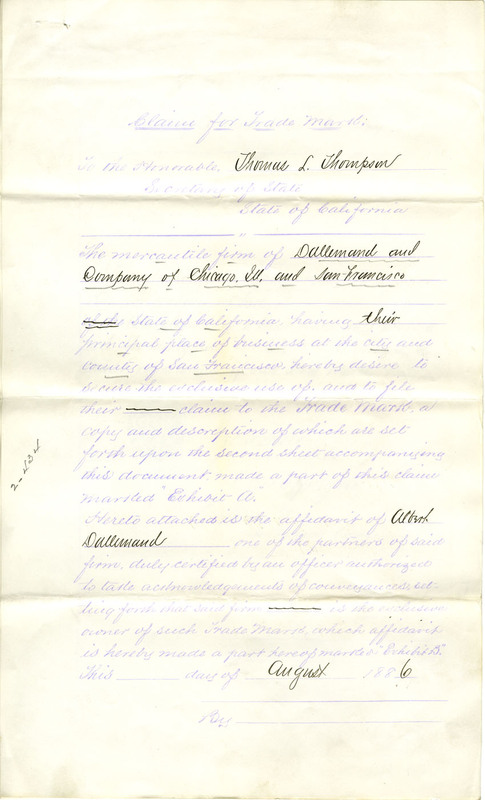 Claim for Trade Mark:
To the Honorable, Thomas L. Thompson
Secretary of State
State of California
The mercantile firm of Dallemand and
Company of Chicago, Ill, and San Francisco
State of California, having their
principal place of business at the city and
county of San Francisco, hereby desire to
secure the exclusive use of, and to file
their claim to the Trade Mark, a
copy and description of which are set
forth upon the second sheet accompanying
this document, made a part of this claim
marked "Exhibit A.
Hereto attached is the affidavit of Albert
Dallemand one of the partners of said
firm, duly certified by an officer authorized
to take acknowledgements of conveyances, set-
ting forth that said firm is the exclusive
owner of such Trade Mark, which affidavit
is hereby made a part hereof marked "Exhibit B.
This day of August 1886
By
2-434